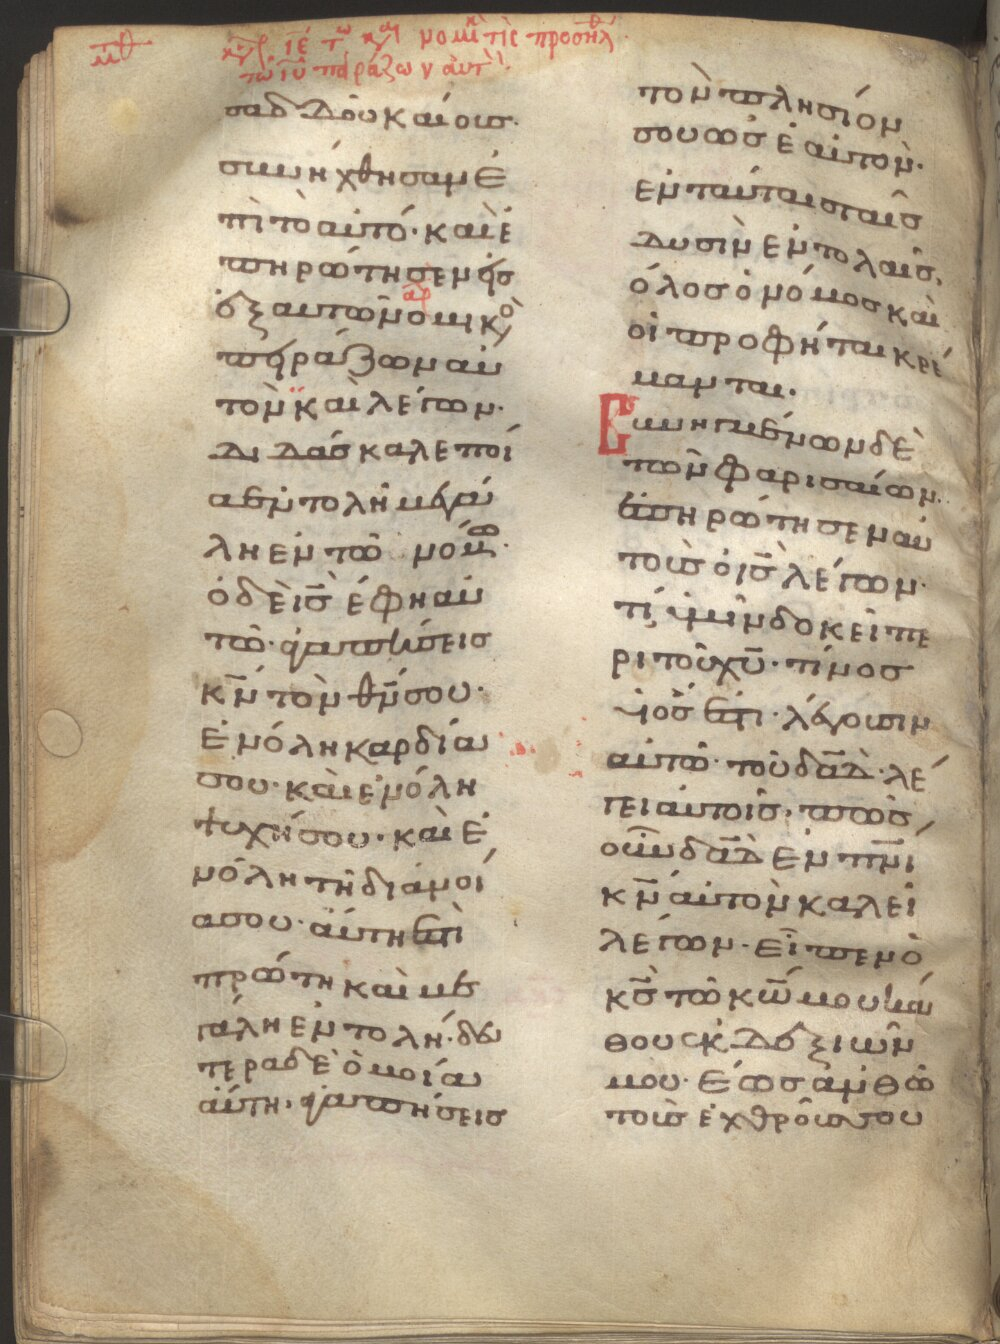 σαδδουκαίοις·
συνήχθησαν ἐ
πὶ τὸ αὐτό· καὶ ἐ
πηρώτησεν εἷς
ἐξ αὐτῶν νομικὸ
πειράζων αὐ
τὸν καὶ λέγων·
διδάσκαλε ποί
α ἐντολὴ μεγά
λη ἐν τῶ νόμω·
ὁ δὲ ι̅ς̅ ἔφη αυ
τῶ· ἀγαπήσεις
κ̅ν̅ τὸν θ̅ν̅ σου·
ἐν ὅλη καρδία
σου· καὶ ἐν ὅλη
ψυχῆ σου· καὶ ἐ
ν ὅλη τῆ διανοί
α σου· αὕτη ἐστὶ
πρώτη καὶ με
γάλη ἐντολή· δευ
τέρα δὲ ὁμοία
αὐτῆ· ἀγαπήσεις
τὸν πλησίον
σου ὡς ἑαυτόν·
ἐν ταύταις ταῖς
δυσὶν ἐντολαῖς,
ὅλος ὁ νόμος καὶ
οἱ προφῆται κρέ
μανται·
Συνηγμένων δὲ
τῶν φαρισαίων·
ἐπηρώτησεν αὐ
τοὺς ὁ ι̅ς̅ λέγων·
τί ὑμῖν δοκεῖ πε
ρὶ τοῦ χ̅υ̅· τίνος
υἱός ἐστι· λέγουσιν
αὐτῶ· τοῦ δ̅α̅δ̅· λέ
γει αὐτοῖς· πῶς
οὖν δ̅α̅δ̅ ἐν π̅ν̅ι
κ̅ν̅ αὐτὸν καλεῖ
λέγων· εἶπεν ὁ
κ̅ς̅ τῶ κ̅ω̅ μου κά
θου ἐκ δεξιῶν
μου· ἕως ἂν θῶ
τοὺς ἐχθρούς σου